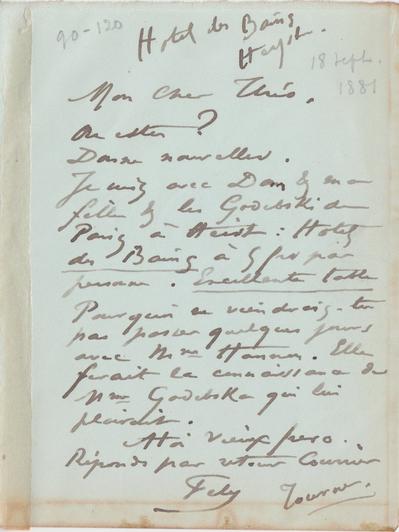 90-120
Hotel des Bains.
Heyst.
18 Sept.
1881
Mon cher Théo.
Ou estu ?
Donne nouvelles.
Je suis avec Dom & ma
fille & les Godebski de
Paris à Heist : Hotel
des Bains à 9 frs par
personne. Excellente table
Pourquoi ne viendrais-tu
pas passer quelques jours
avec Mme Hannon. Elle
ferait la connaissance de
Mme Godebska qui lui
plairait.
A toi vieux frero.
Réponds par retour Courrier
Fely